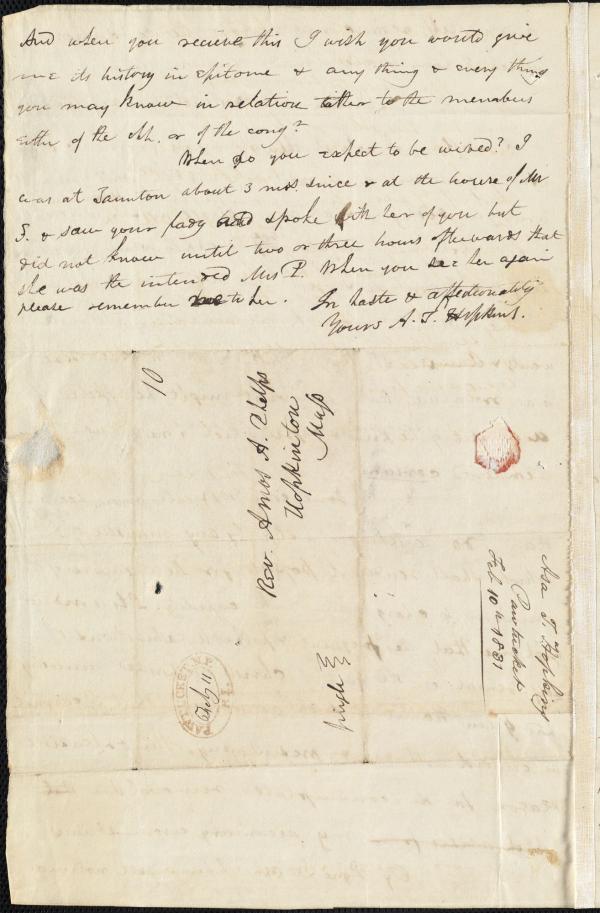 And when you recieve this I wish you would give
me its history in epitome & any thing & every thing
you may know in relation either to the menubus
either of the chh. or of the cong.n
When do you expect to be wived? I
was at Taunton about 3 mos. since & at the house of Mr
F. & saw your lady and spoke with her of you but
did not know until two or three hours afterwards that
she was the intended Mrs P. When you see her again
please remember me to her. In haste & affectionately
Yours A. T. Hopkins.
10
Rev. Amos A. Phelps
Hopkinton
Mass
PAWTUCKET
R.I.
Feby 11
Single
Asa T. Hopkins
Pawtucket
Feb 10th 1831